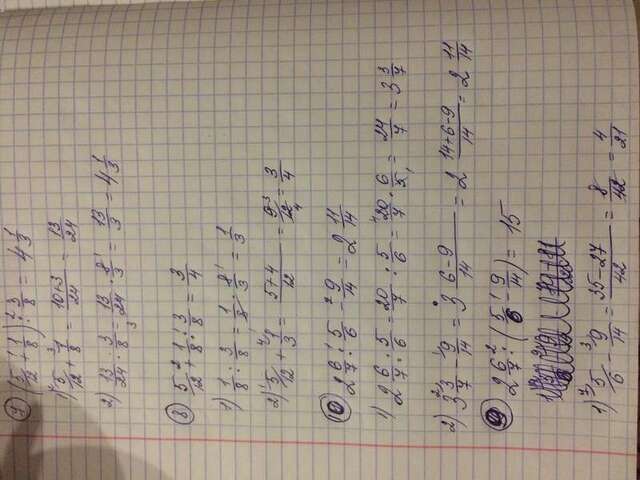 7) (5/12 + 1/8) : 3/8 = 4 1/3
1) 5/12 + 1/8 = 10+3/24 = 13/24
2) 13/24 : 3/8 = 13/24 · 8/3 = 13/3 = 4 1/3
8) 5/12 + 1/8 : 3/8 = 3/4
1) 1/8 : 3/8 = 1/8 · 8/3 = 1/3
2) 5/12 + 1/3 = 5+4/12 = 9/12 = 3/4
10) 2 6/7 : 5/6 - 9/14 = 2 11/14
1) 2 6/7 : 5/6 = 20/7 : 5/6 = 20/7 · 6/5 = 24/7 = 3 3/7
2) 3 3/7 - 9/14 = 3 6-9/14 = 2 14+6-9/14 = 2 11/14
9) 2 6/7 : (5/6 - 9/14) = 15
1) 5/6 - 9/14 = 35-27/42 = 8/42 = 4/21